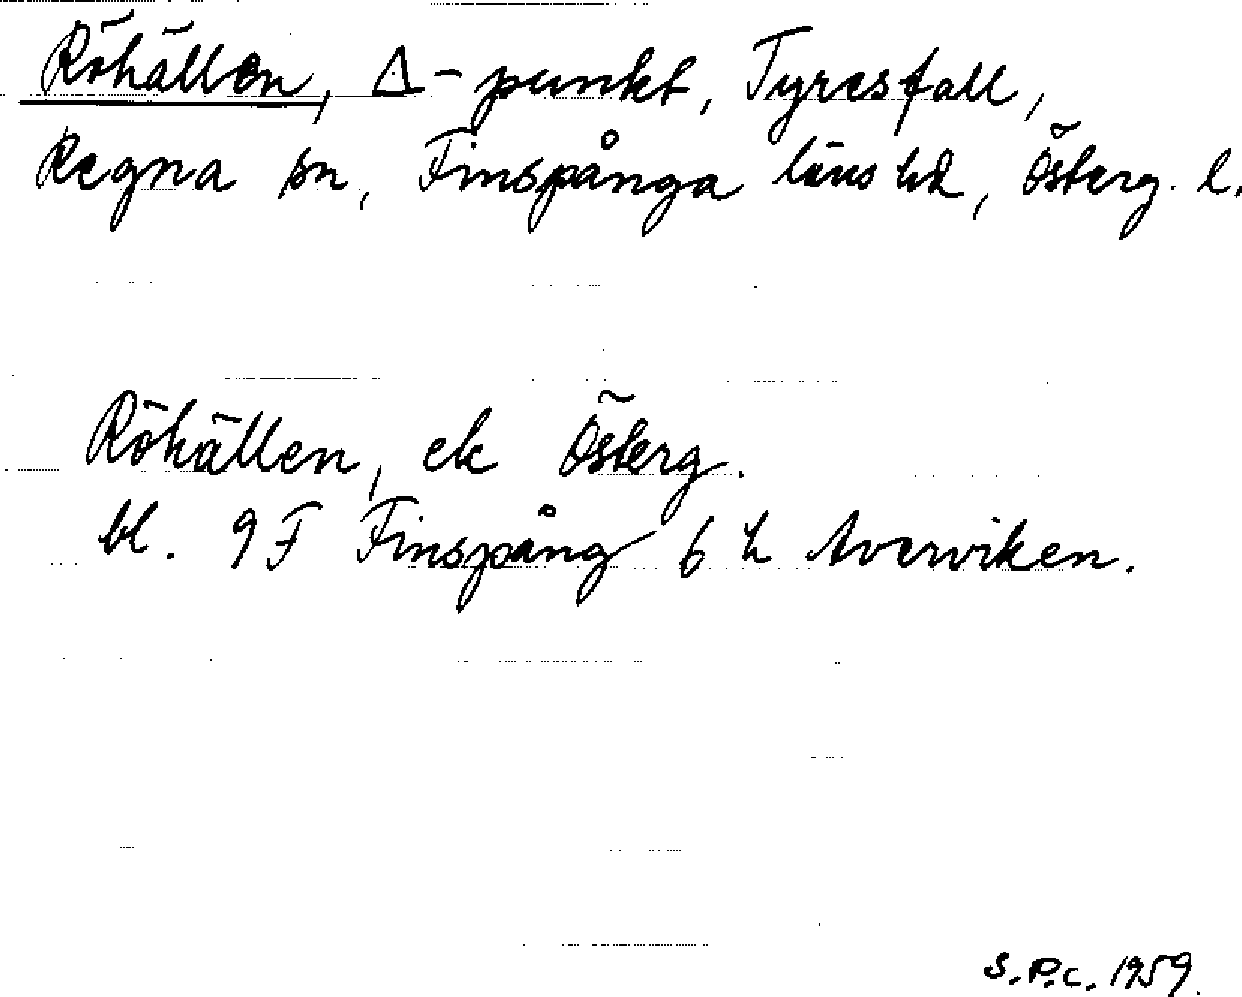 Röhällen, Δ-punkt, Tyresfall,
Regna sn, Finspånga läns hd, Österg. l.
Röhällen, ek Österg.
bl. 9F Finspång 6 h Averviken.
S.P.C. 1959.